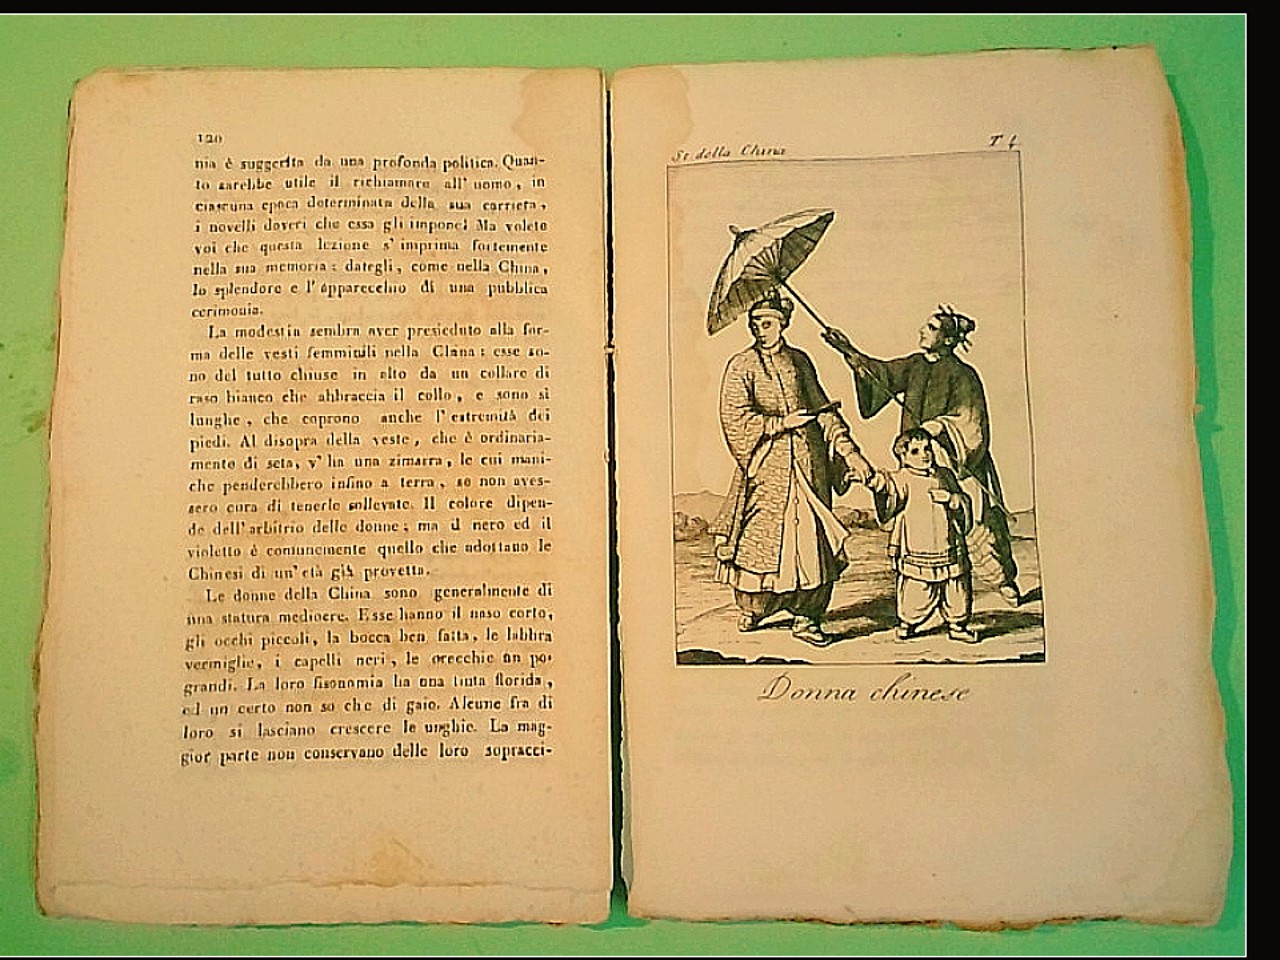 120
nia è suggerita da una profonda politica. Quan-
to sarebbe utile il richiamare all' uomo, in
ciascuna epoca determinata della sua carriera,
i novelli doveri che essa gli impone! Ma volete
voi che questa lezione s' imprima fortemente
nella sua memoria: dategli, come nella China,
lo splendore e l' apparecchio di una pubblica
cerimonia.
La modestia sembra aver presieduto alla for-
ma delle vesti femminili nella China: esse so-
no del tutto chiuse in alto da un collare di
raso bianco che abbraccia il collo, e sono sì
lunghe, che coprono anche l' estremità dei
piedi. Al disopra della veste, che è ordinaria-
mente di seta, v' ha una zimarra, le cui mani-
che penderebbero infino a terra, se non aves-
sero cura di tenerle sollevate. Il colore dipen-
de dell' arbitrio delle donne; ma il nero ed il
violetto è comunemente quello che adottano le
Chinesi di un' età già provetta.
Le donne della China sono generalmente di
una statura mediocre. Esse hanno il naso corto,
gli occhi piccoli, la bocca ben fatta, le labbra
vermiglie, i capelli neri, le orecchie un po'
grandi. La loro fisonomia ha una tinta florida,
ed un certo non so che di gaio. Alcune fra di
loro si lasciano crescere le unghie. La mag-
gior parte non conservano delle loro sopracci-
St. della China
T 4.
Donna chinese